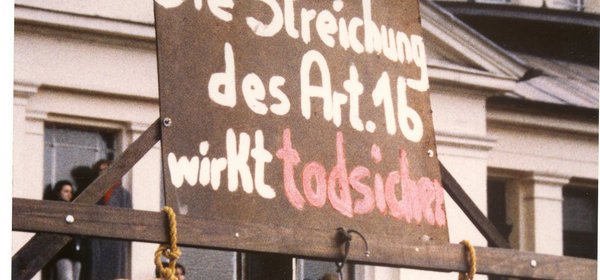 Die Streichung
des Art. 16
wirkt todsicher